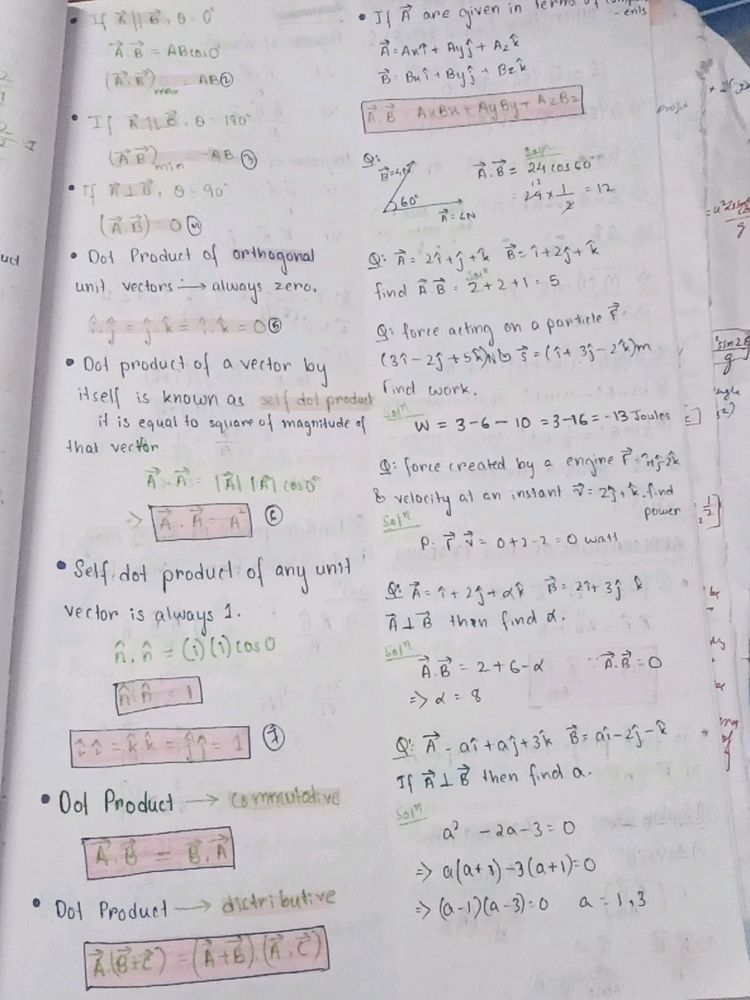 • If A⃗ ∥ B⃗, θ = 0°
A⃗.B⃗ = ABcos0°
(A⃗.B⃗)max = AB ②
• If A⃗ ∥ B⃗, θ = 180°
(A⃗.B⃗)min = -AB ③
• If A⃗ ⊥ B⃗, θ = 90°
(A⃗.B⃗) = 0 ④
• Dot Product of orthogonal
unit vectors → always zero.
î.ĵ = ĵ.k̂ = î.k̂ = 0 ⑤
• Dot product of a vector by
itself is known as self dot product
it is equal to square of magnitude of
that vector
A⃗.A⃗ = |A⃗| |A⃗| cos0°
=> A⃗.A⃗ = A² ⑥
• Self dot product of any unit
vector is always 1.
n̂.n̂ = (1)(1)cos0
n̂.n̂ = 1
î.î = k̂.k̂ = ĵ.ĵ = 1 ⑦
• Dot Product → commutative
A⃗.B⃗ = B⃗.A⃗
• Dot Product → distributive
A⃗.(B⃗+C⃗) = (A⃗+B⃗).(A⃗.C⃗)
• If A⃗ are given in terms of
-ents
A⃗ = Axî + Ayĵ + Azk̂
B⃗ = Bxî + Byĵ + Bzk̂
A⃗.B⃗ = AxBx + AyBy + AzBz
Q:
B⃗=4N
60°
A⃗=6N
Solⁿ
A⃗.B⃗ = 24 cos60°
= 24 × 1/2 = 12
12
Q: A⃗ = 2î + ĵ + k̂ B⃗ = î + 2ĵ + k̂
find A⃗.B⃗ = 2+2+1 = 5
Solⁿ
Q: force acting on a particle F⃗
(3î - 2ĵ + 5k̂)N & S⃗ = (î + 3ĵ - 2k̂)m
find work.
Solⁿ
W = 3-6-10 = 3-16 = -13 Joules
Q: force created by a engine F⃗ = ĵ-2k̂
& velocity at an instant v⃗ = 2ĵ + k̂. find
power
Solⁿ
P = F⃗.v⃗ = 0+2-2 = 0 watt
Q: A⃗ = î + 2ĵ + αk̂ B⃗ = 2î + 3ĵ k̂
A⃗ ⊥ B⃗ then find α.
Solⁿ
A⃗.B⃗ = 2+6-α ∵ A⃗.B⃗ = 0
=> α = 8
Q: A⃗ = aî + aĵ + 3k̂ B⃗ = aî - 2ĵ - k̂
If A⃗ ⊥ B⃗ then find a.
Solⁿ
a² - 2a - 3 = 0
=> a(a+1) - 3(a+1) = 0
=> (a-1)(a-3) = 0 a = 1, 3